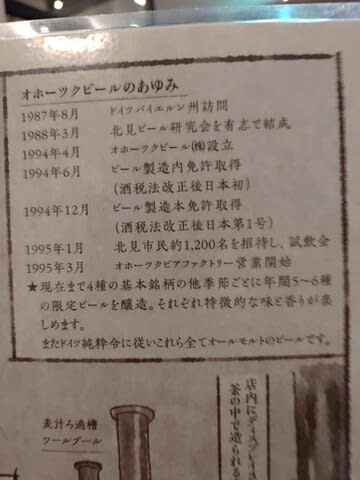 オホーツクビールのあゆみ
1987年8月 ドイツバイエルン州訪問
1988年3月 北見ビール研究会を有志で結成
1994年4月 オホーツクビール㈱設立
1994年6月 ビール製造内免許取得
(酒税法改正後日本初)
1994年12月 ビール製造本免許取得
(酒税法改正後日本第1号)
1995年1月 北見市民約1,200名を招待し、試飲会
1995年3月 オホーツクビアファクトリー営業開始
★現在まで4種の基本銘柄の他季節ごとに年間5〜6
種の限定ビールを醸造。それぞれ特徴的な味と香りが楽
しめます。
またドイツ純粋令に従いこれら全てオールモルトのビールです。
麦汁ろ過槽
ワールプール
店内にディスプレイ
釜の中で造られる